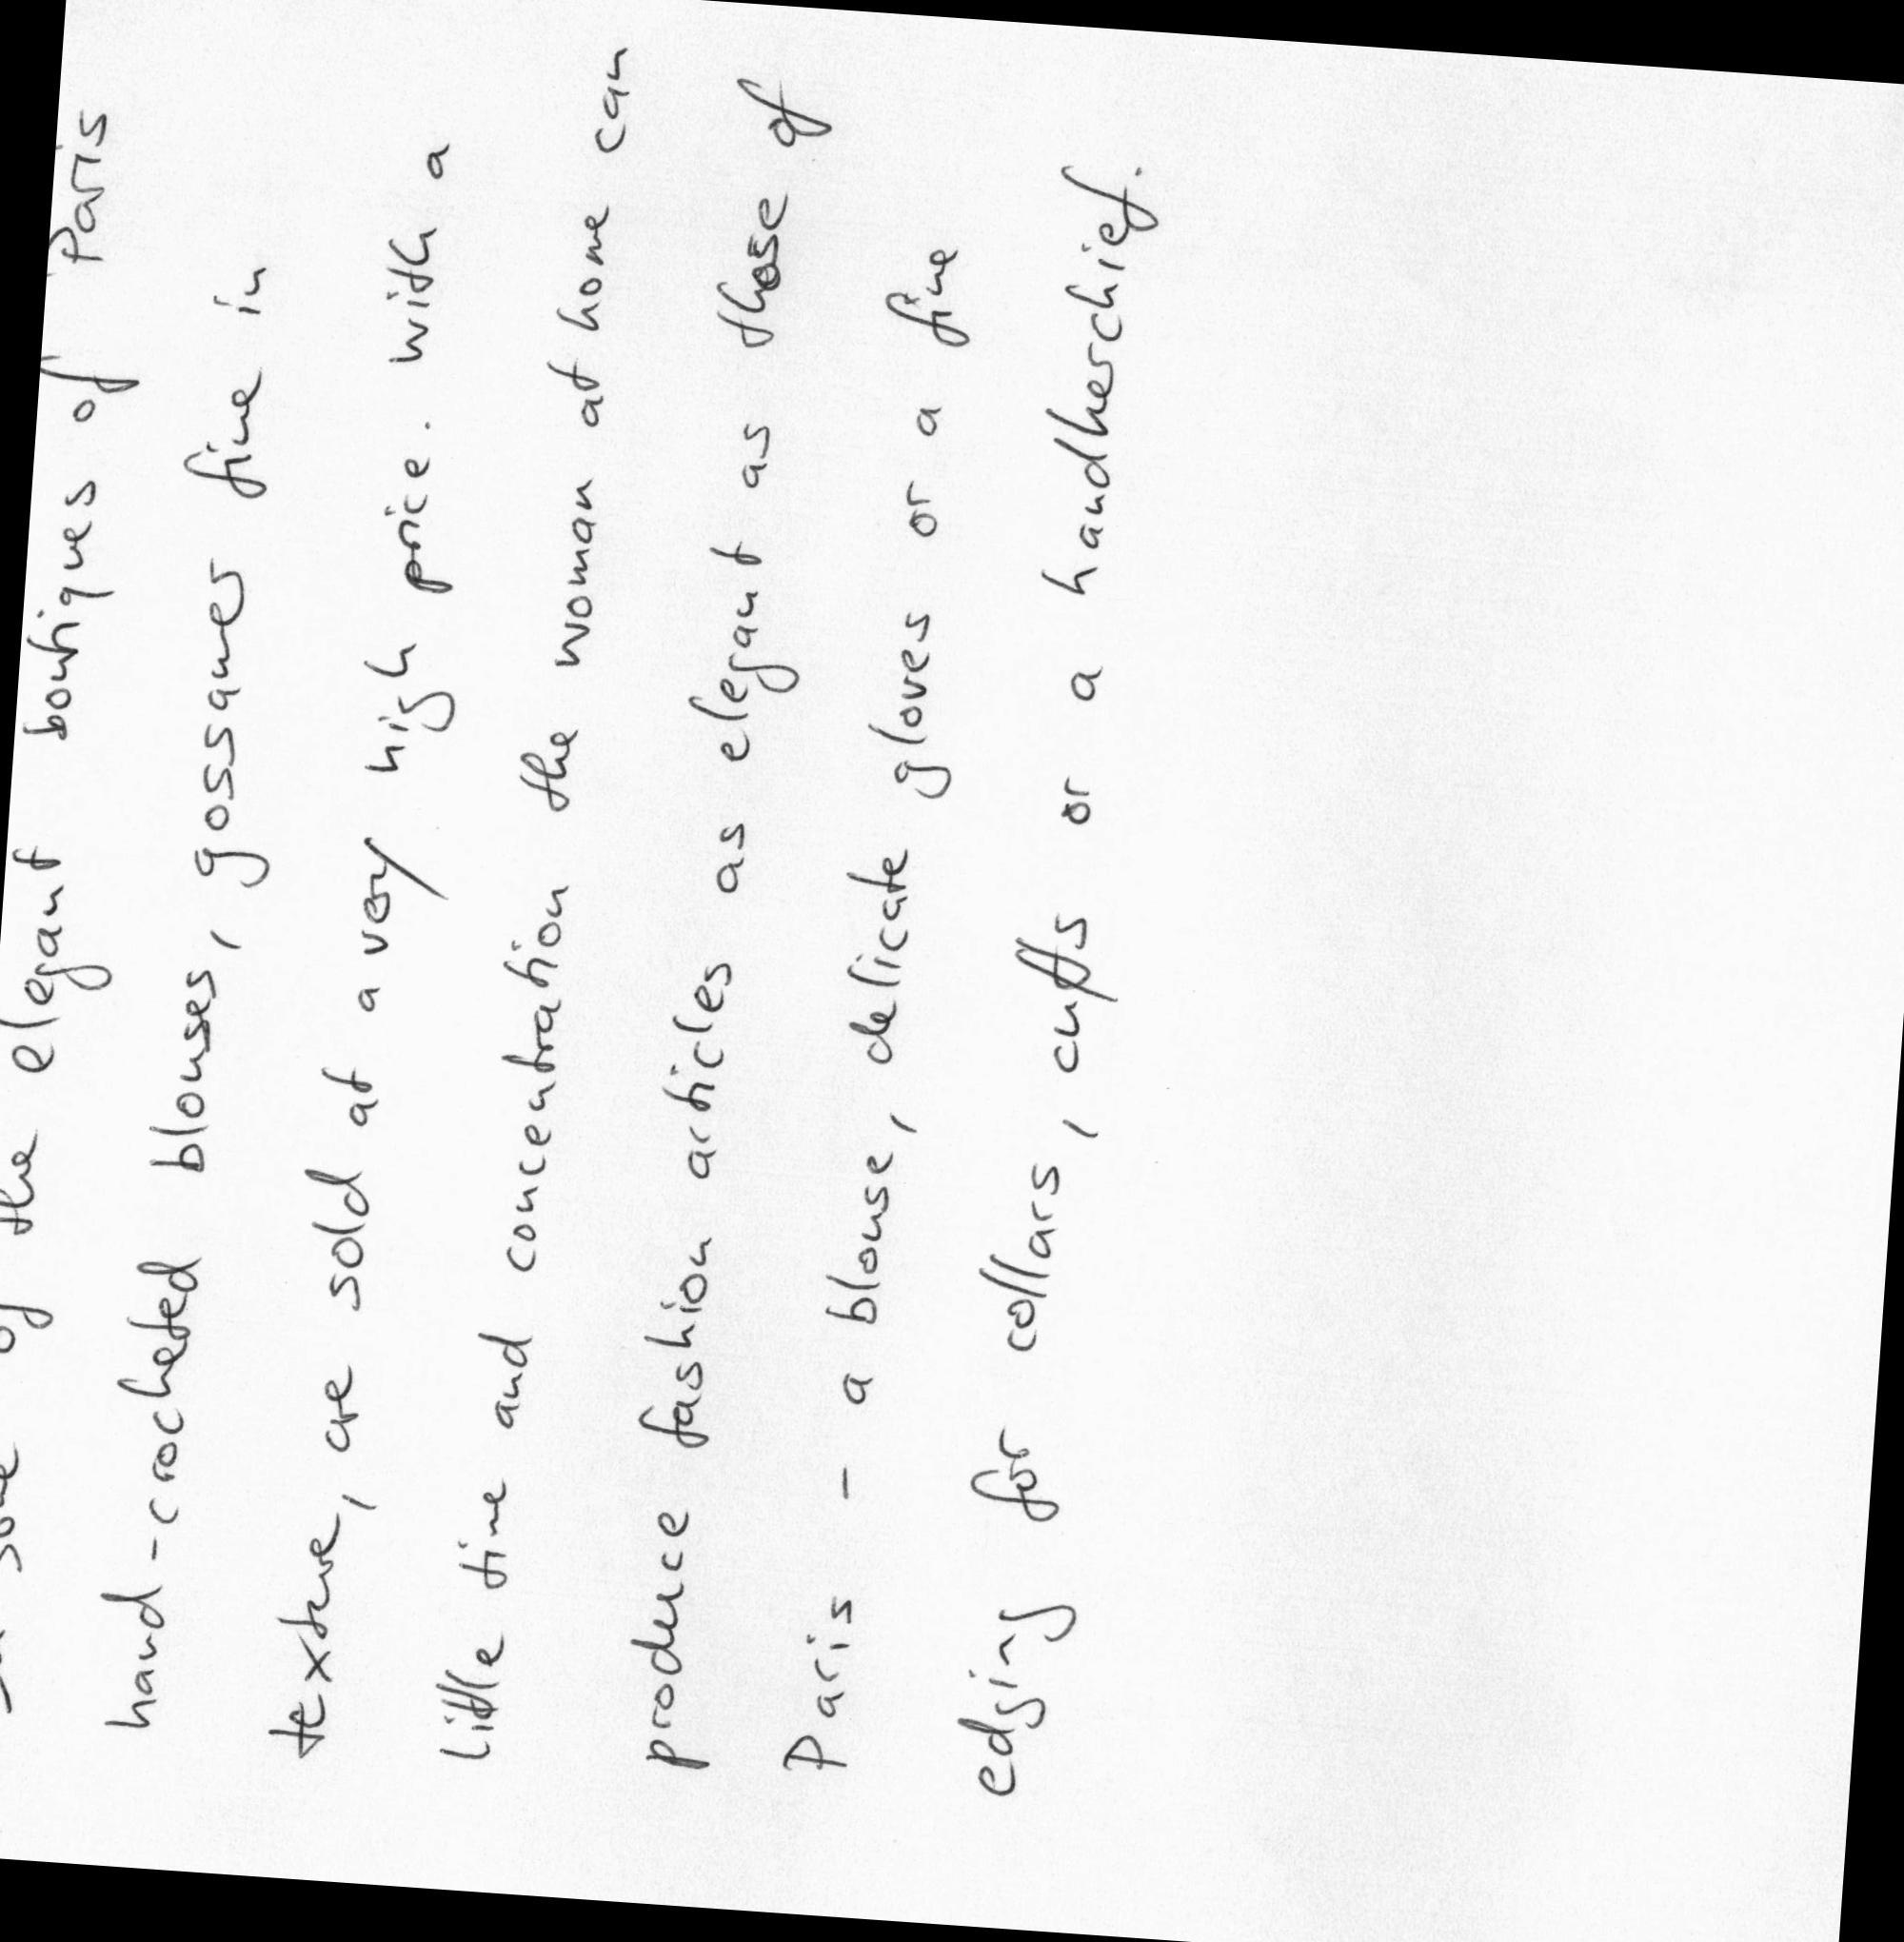 In some of the elegant boutiques of Paris
hand-crocheted blouses, gossamer fine in
texture, are sold at a very high price. With a
little time and concentration the woman at home can
produce fashion articles as elegant as those of
Paris - a blouse, delicate gloves or a fine
edging for collars, cuffs or a handkerchief.